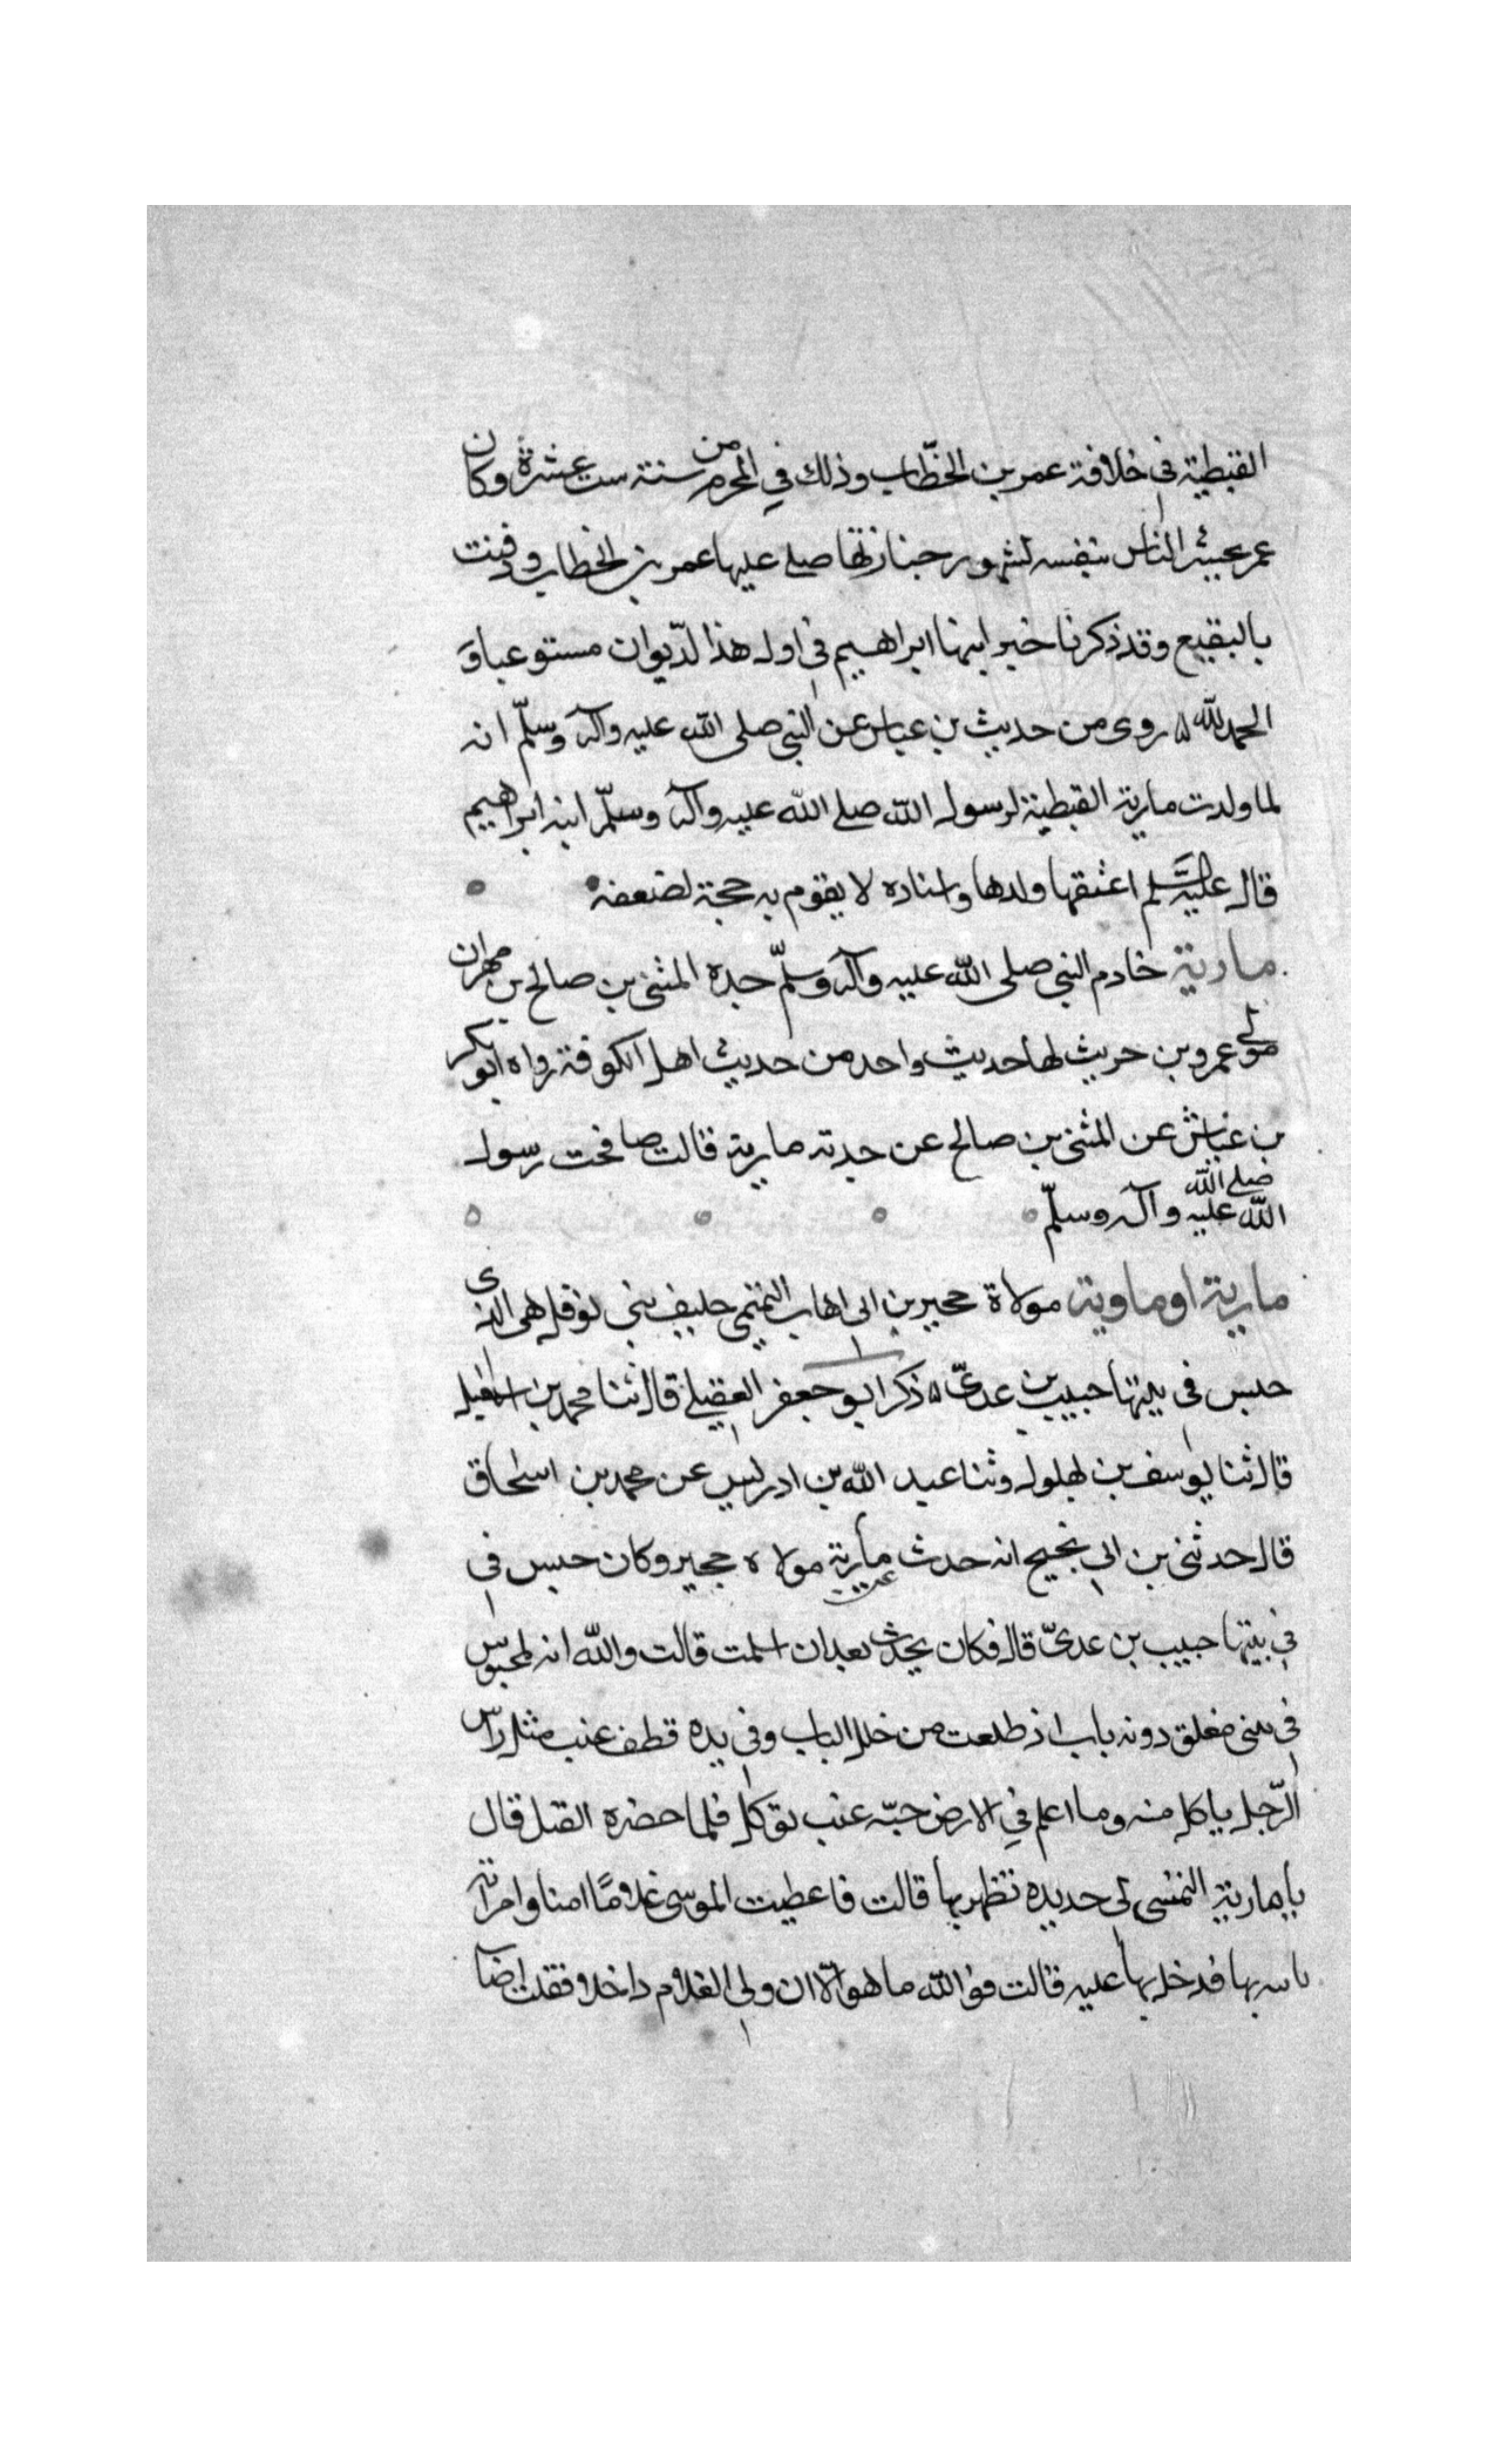 القبطية في خلافة عمر بن الخطّاب وذلك في المحرم من سنة ست عشرة وكان
عمر يحشر الناس بنفسه لشهور جنازتها صلى عليها عمر بن الخطاب ودفنت
بالبقيع وقد ذكرنا خبر ابنها ابراهيم في اول هذا لدّيوان مستوعبا و
الحمد لله ۵ روى من حديث بن عباس عن النبي صلى الله عليه وآله وسلّم انه
لما ولدت مارية القبطية لرسول الله صلى الله عليه وآله وسلّم ابنه ابراهيم
قال عليه السلم اعتقها ولدها واسناده لا يقوم به حجة لضعفه
مارية خادم النبي صلى الله عليه وآله وسلّم جدة المثنى بن صالح بن مهران
مولى عمرو بن حريث لها حديث واحد من حديث اهل الكوفة رواه ابو بكر
بن عياش عن المثنى بن صالح عن جدته مارية قالت صافحت رسول
الله صلى الله عليه وآله وسلّم
مارية او ماوية مولاة حجير بن ابى اهاب التميمي حليف بني نوفل هى الذى
حبس في بيتها حبيب بن عدىّ ۵ ذكر ابو جعفر العقيلي قال ثنا محمد بن اسمعيل
قال ثنا يوسف بن بهلول وثنا عبد الله بن ادريس عن محمد بن اسحاق
قال حدثنى بن ابى نجيح انه حدث عن مارية مولاة حجير وكان حبس في
في بيتها حبيب بن عدىّ قال فكان يحدث بعد ان اسلمت قالت والله انه لمحبوس
في بيتى مغلق دونه باب اذ طلعت من خلل الباب وفي يده قطف عنب مثل راس
الرّجل ياكل منه وما اعلم في الارض حبّه عنب تؤكل فلما حضره القتل قال
يا مارية التمسى لى حديده تظهر بها قالت فاعطيت الموسى غلامًا امنا وامراته
بها فدخل بها عليه قالت فوالله ما هو الّا ان ولى الغلام داخلا فقلت اصاب